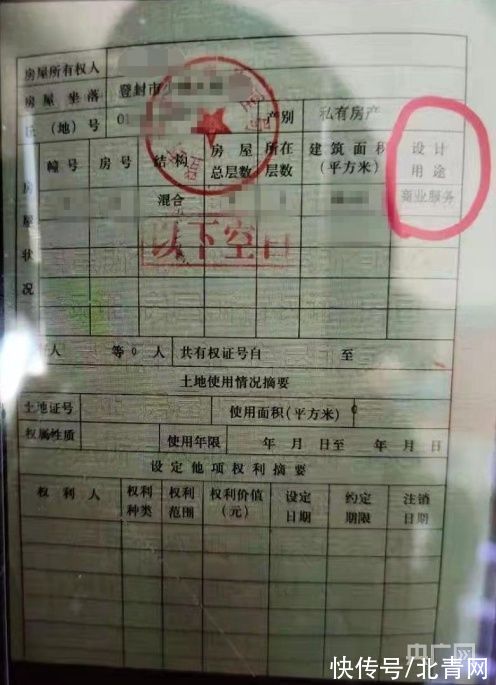 房屋所有权人
房屋坐落 登封市
(地)号 01 产别 私有房产
房屋状况 幢号 房号 结构 房屋总层数 所在层数 建筑面积(平方米) 设计用途
混合 商业服务
以下空白
人 等0人 共有权证号自 至
土地使用情况摘要
土地证号 使用面积(平方米) 0
权属性质 使用年限 年 月 日至 年 月 日
设定他项权利摘要
权利人 权利种类 权利范围 权利价值(元) 设定日期 约定期限 注销日期
央广网
快传号/北青网